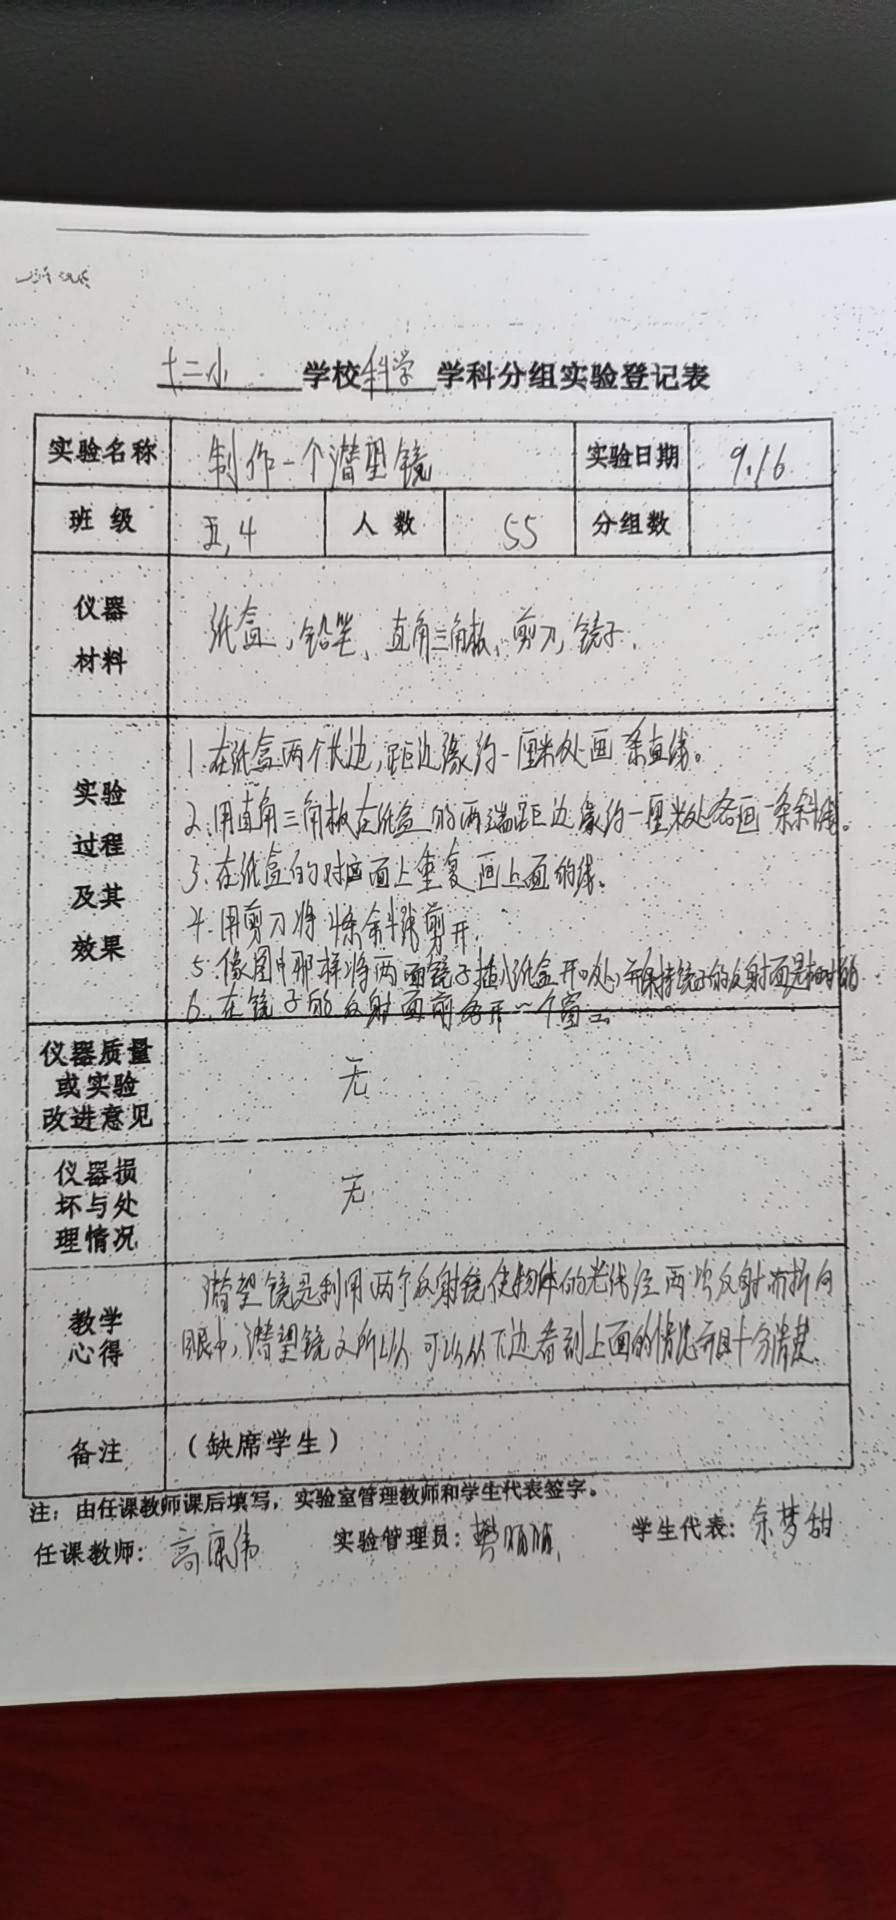 十二小 学校 科学 学科分组实验登记表
实验名称 制作一个潜望镜 实验日期 9.16
班级 五,4 人数 55 分组数
仪器材料 纸盒,铅笔、直角三角板、剪刀,镜子.
实验过程及其效果
1.在纸盒两个长边,距边缘约一厘米处画 条直线。
2.用直角三角板在纸盒的两端距边缘约一厘米处各画一条斜线。
3.在纸盒的对应面上重复画上面的线。
4.用剪刀将 条斜线剪开.
5.像图中那样将两面镜子插入纸盒开口处,并保持镜子的反射面是相对的
6.在镜子的反射面前各开一个窗口
仪器质量或实验改进意见 无
仪器损坏与处理情况 无
教学心得 潜望镜是利用两个反射镜使物体的光线经两次反射而折向
眼中,潜望镜之所以 可以从下边看到上面的情况而且十分清楚.
备注 (缺席学生)
注:由任课教师课后填写,实验室管理教师和学生代表签字。
任课教师: 高康伟 实验管理员: 樊 学生代表: 余梦甜